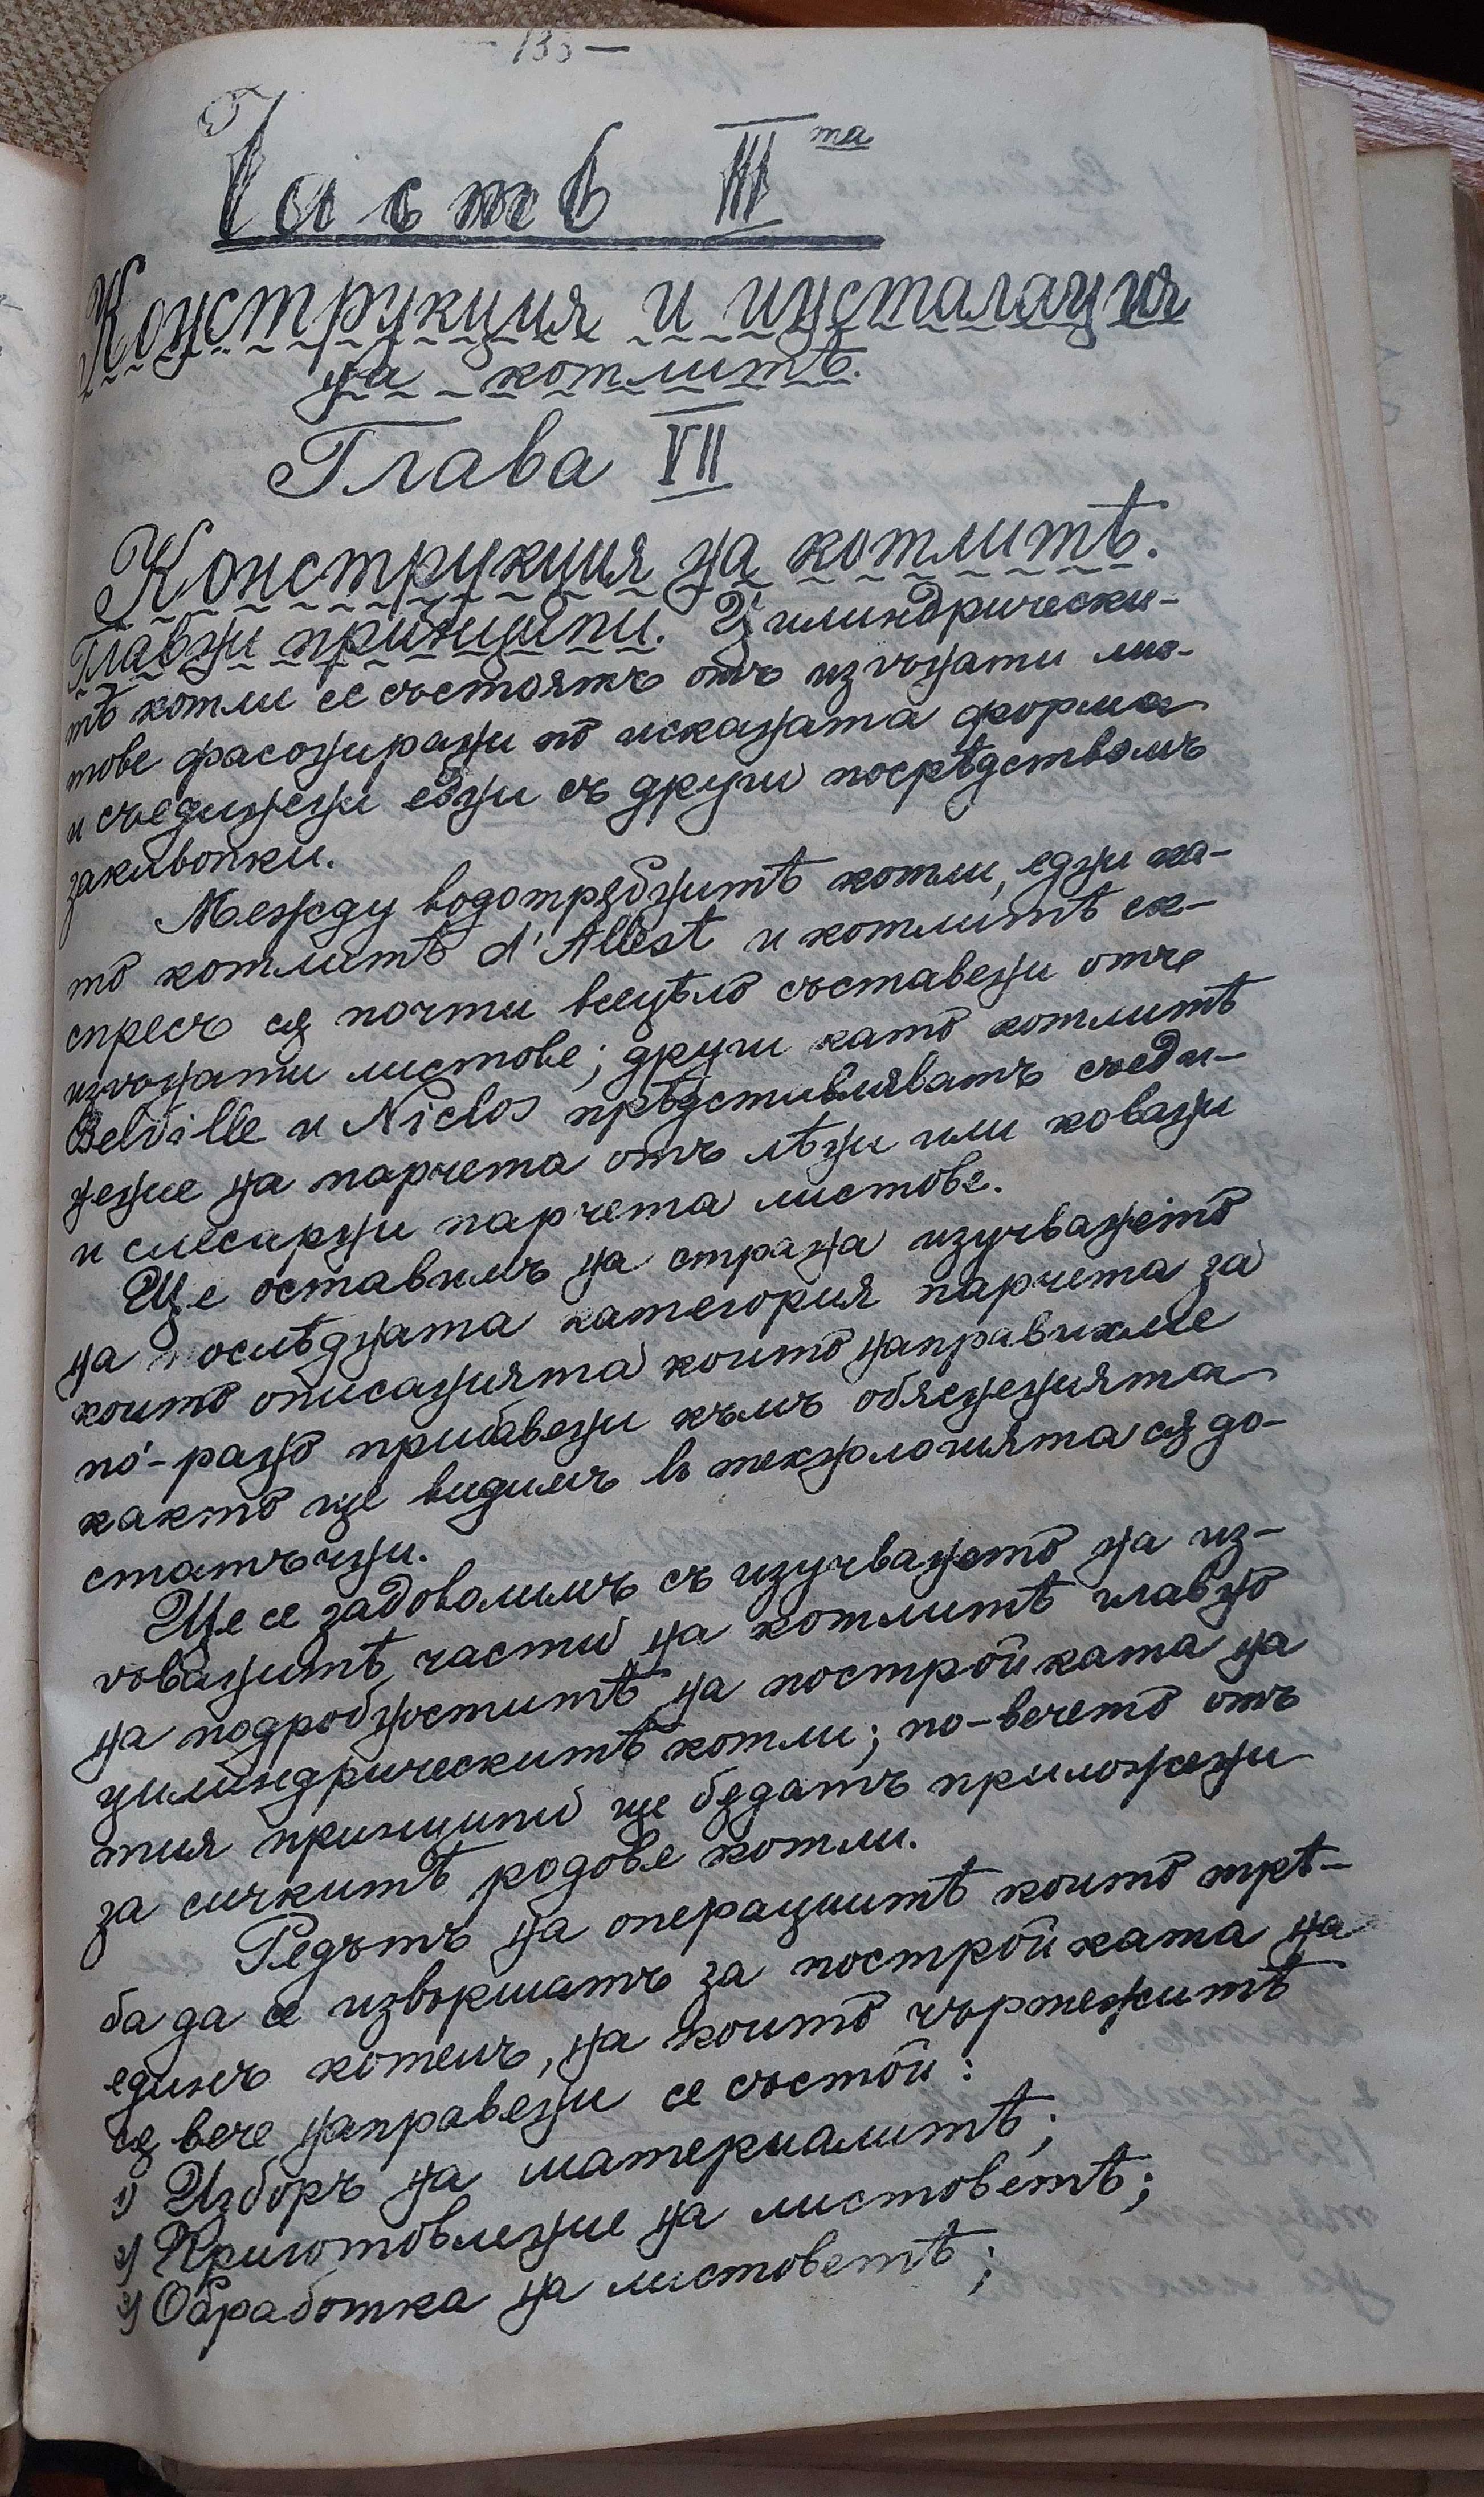 — 133 —
Часть III та
Конструкция и инсталация
на котлитѣ.
Глава VII
Конструкция на котлитѣ.
Главни принципи. Цилиндрически-
тѣ котли се състоятъ отъ извънати лис-
тове фасонирани по исканата форма
и съединени едни съ други посрѣдствомъ
закивопки.
Между водотрѫбнитѣ котли, едни ка-
то котлитѣ d'Allest и котлитѣ ек-
спресъ сѫ почти всецѣло съставени отъ
извънати листове; други като котлитѣ
Belville и Niclos прѣдставляватъ съеди-
нение на парчета отъ лѣни или ковани
и слесарни парчета листове.
Ще оставимъ на страна изучването
на послѣдната категория парчета за
които описанията които направихме
по́-рано прибавени къмъ обясненията
както ще видимъ въ технологията сѫ до-
статъчни.
Ще се задоволимъ съ изучването на из-
гованитѣ части на котлитѣ главно
на подробноститѣ на постройката на
цилиндрическитѣ котли; по-вечето отъ
тия принципи ще бѫдатъ приложени
за сичкитѣ родове котли.
Редътъ на операциитѣ които трѣ-
ба да се извършатъ за постройката на
единъ котелъ, на които чъртежитѣ
сѫ вече направени се състои:
1) Изборъ на материалитѣ;
2) Приготовление на листоветѣ;
3) Обработка на листоветѣ;